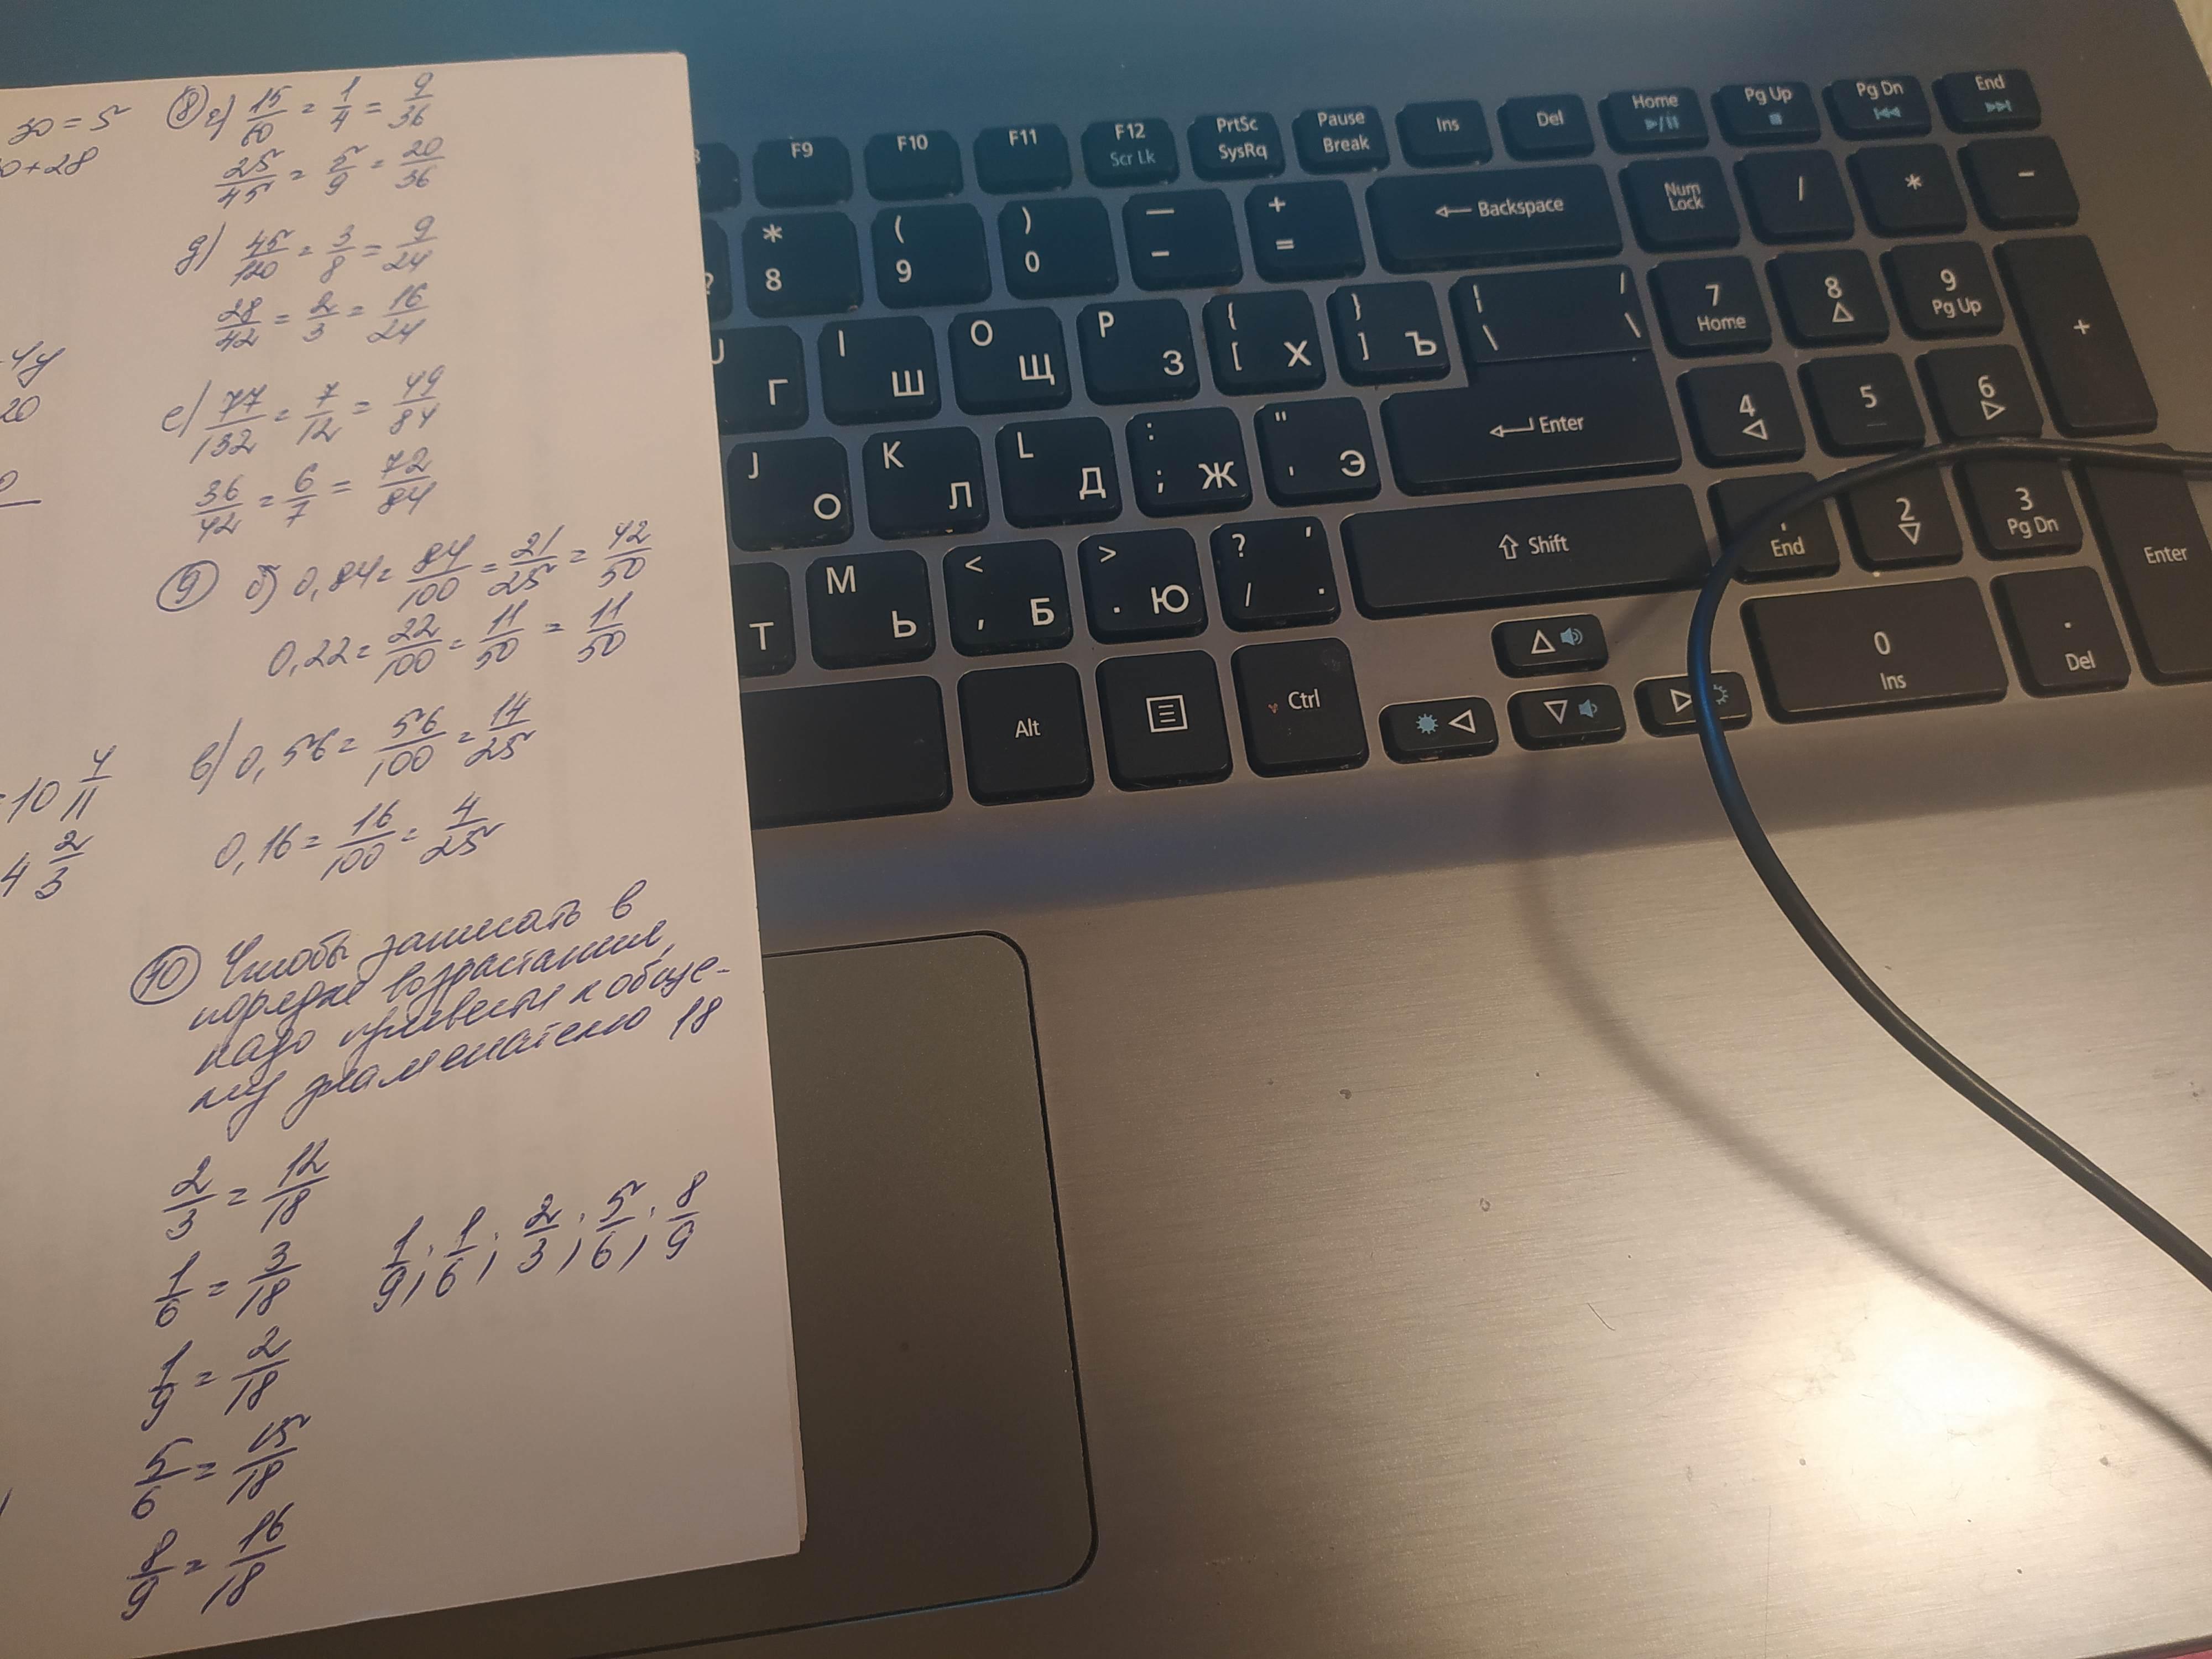 30 = 5
0+28
4y
20
10 4/11
4 2/3
⑧ г) 15/60 = 1/4 = 9/36
25/45 = 5/9 = 20/36
д) 45/120 = 3/8 = 9/24
28/42 = 2/3 = 16/24
е) 77/132 = 7/12 = 49/84
36/42 = 6/7 = 72/84
⑨ б) 0,84 = 84/100 = 21/25 = 42/50
0,22 = 22/100 = 11/50 = 11/50
в) 0,56 = 56/100 = 14/25
0,16 = 16/100 = 4/25
⑩ Чтобы записать в
порядке возрастания,
надо привести к обще-
му знаменателю 18
2/3 = 12/18
1/6 = 3/18
1/9 = 2/18
5/6 = 15/18
8/9 = 16/18
1/9; 1/6; 2/3; 5/6; 8/9
F9 F10 F11 F12 Scr Lk PrtSc SysRq Pause Break Ins Del Home Pg Up Pg Dn End
* 8 ( 9 ) 0 — - + = Backspace Num Lock / * -
U Г I Ш O Щ P З { [ Х } ] Ъ | \ / \ 7 Home 8 9 Pg Up +
J О K Л L Д : ; Ж " ' Э Enter 4 5 6
Т M Ь < , Б > . Ю ? / , . Shift End 2 3 Pg Dn Enter
Alt Ctrl 0 Ins . Del